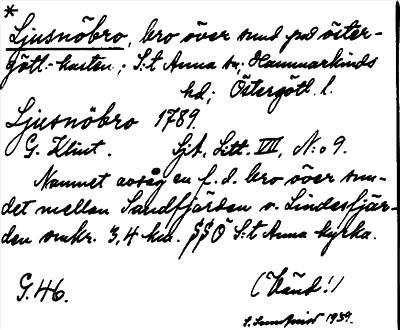 *
Ljusnöbro, bro över sund på öster-
götl.-kusten; S:t Anna sn; Hammarkinds
hd; Östergötl. l.
Ljusnöbro 1789.
G. Klint. Sjk. Litt. VII, N:o 9.
Namnet avsåg en f. d. bro över sun-
det mellan Sandfjärden o. Lindesfjär-
den omkr. 3,4 km. SSO S:t Anna kyrka.
G. 46. (Vänd!)
1939.